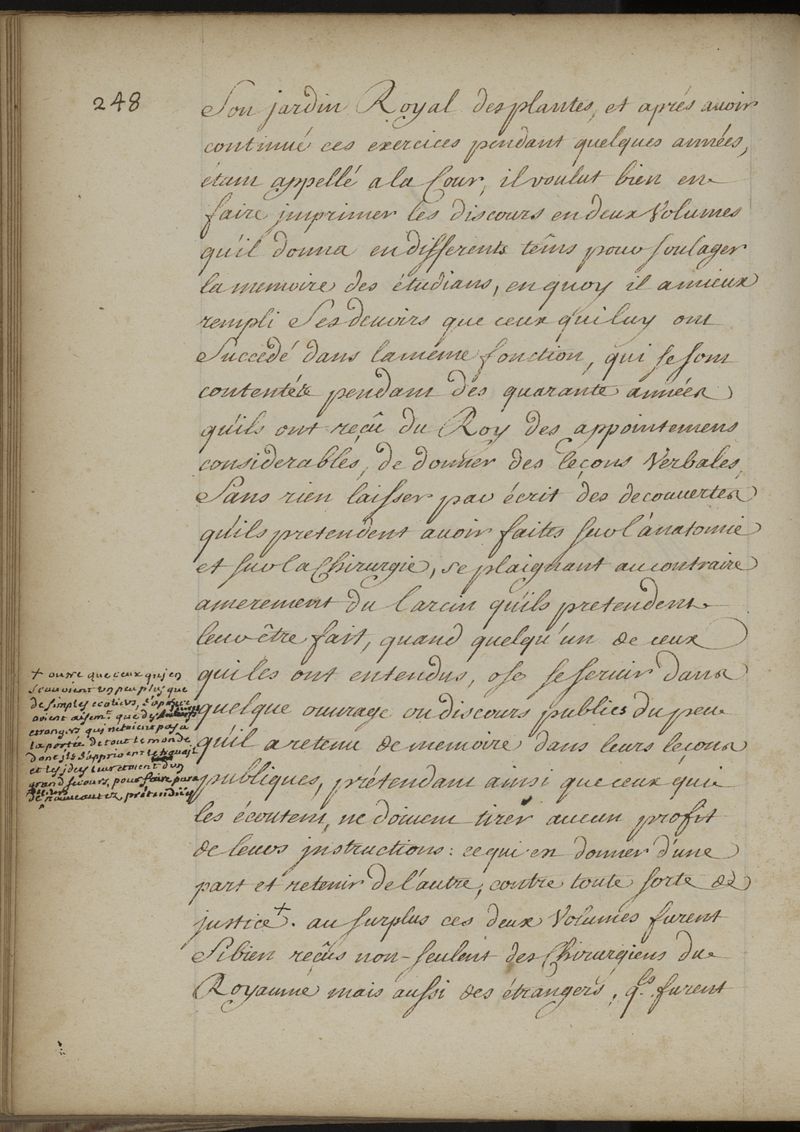 248
Son jardin Royal des plantes, et aprés avoir
continué ces exercices pendant quelques années,
étant appellé a la Cour, il voulut bien en
faire jmprimer les discours en deux Volumes
qu'il donna en differents têms pour soulager
la memoire des étudians, en quoy il a mieux
rempli Ses devoirs que ceux qui luy ont
Succedé dans la même fonction, qui se sont
contentés pendant des quarante années
qu'ils ont reçû du Roy des appointemens
considerables, de donner des leçons Verbales,
Sans rien laisser par écrit des decouvertes
qu'ils pretendent avoir faites sur l'anatomie
et sur la Chirurgie, se plaignant au contraire
amerement du larcin qu'ils pretendent
leur être fait, quand quelqu'un de ceux
qui les ont entendus, ose se servir dans
quelque ouvrage ou discours publics du peu
qu'il a retenu de memoire dans leurs leçons
publiques, prétendant ainsi que ceux qui
les écoutent, ne doivent tirer aucun profit
de leurs jnstructions: ce qui en donner d'une
part et retenir de l'autre, contre toute sorte de
justice+. au surplus ces deux Volumes furent
Si bien reçûs non-seulemt des Chirurgiens du
Royaume mais aussi des étrangers, qls furent
+ outre que ceux qui en
scauroient un peu plus que
de simples ecoliers, s'aperce
voient aisemt. que des
etrangers qui n'etoient pas a
la portée de tout le monde
dont jls s'approprioent le travail
et les jdées leur etoient d'un
grand secours, pour faire
de nouveautez, prétendües